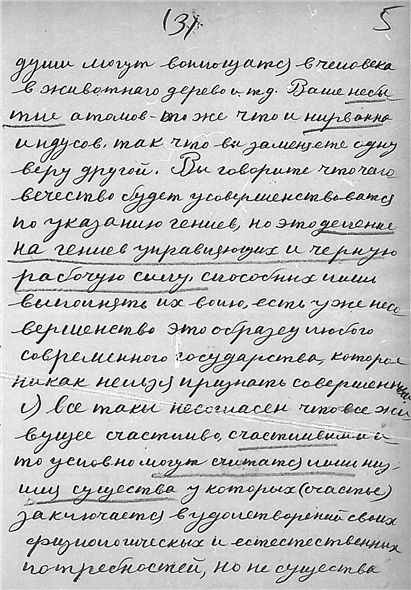 (3). 5
души могут воплощатся в человека
в животнаго дерево и т.д. Ваше небы
тие атомов-то же что и нирванна
индусов. так что вы заменяете одну
веру другой. Вы говорите что чело
вечество будет усовершенствоватся
по указанию гениев, но это деление
на гениев управляющих и черную
рабочую силу, способных лишь
выполнять их волю, есть уже несо
вершенство это образец любого
современного государства, которое
никак нельзя признать совершенным
и) все таки несогласен что все жи
вущее счастливо, счастливыми и
то условно могут считатся лишь низ
шия существа у которых (счастье)
заключается в удовлетворений своих
физиологическых и естественних
потребностей, но не существа